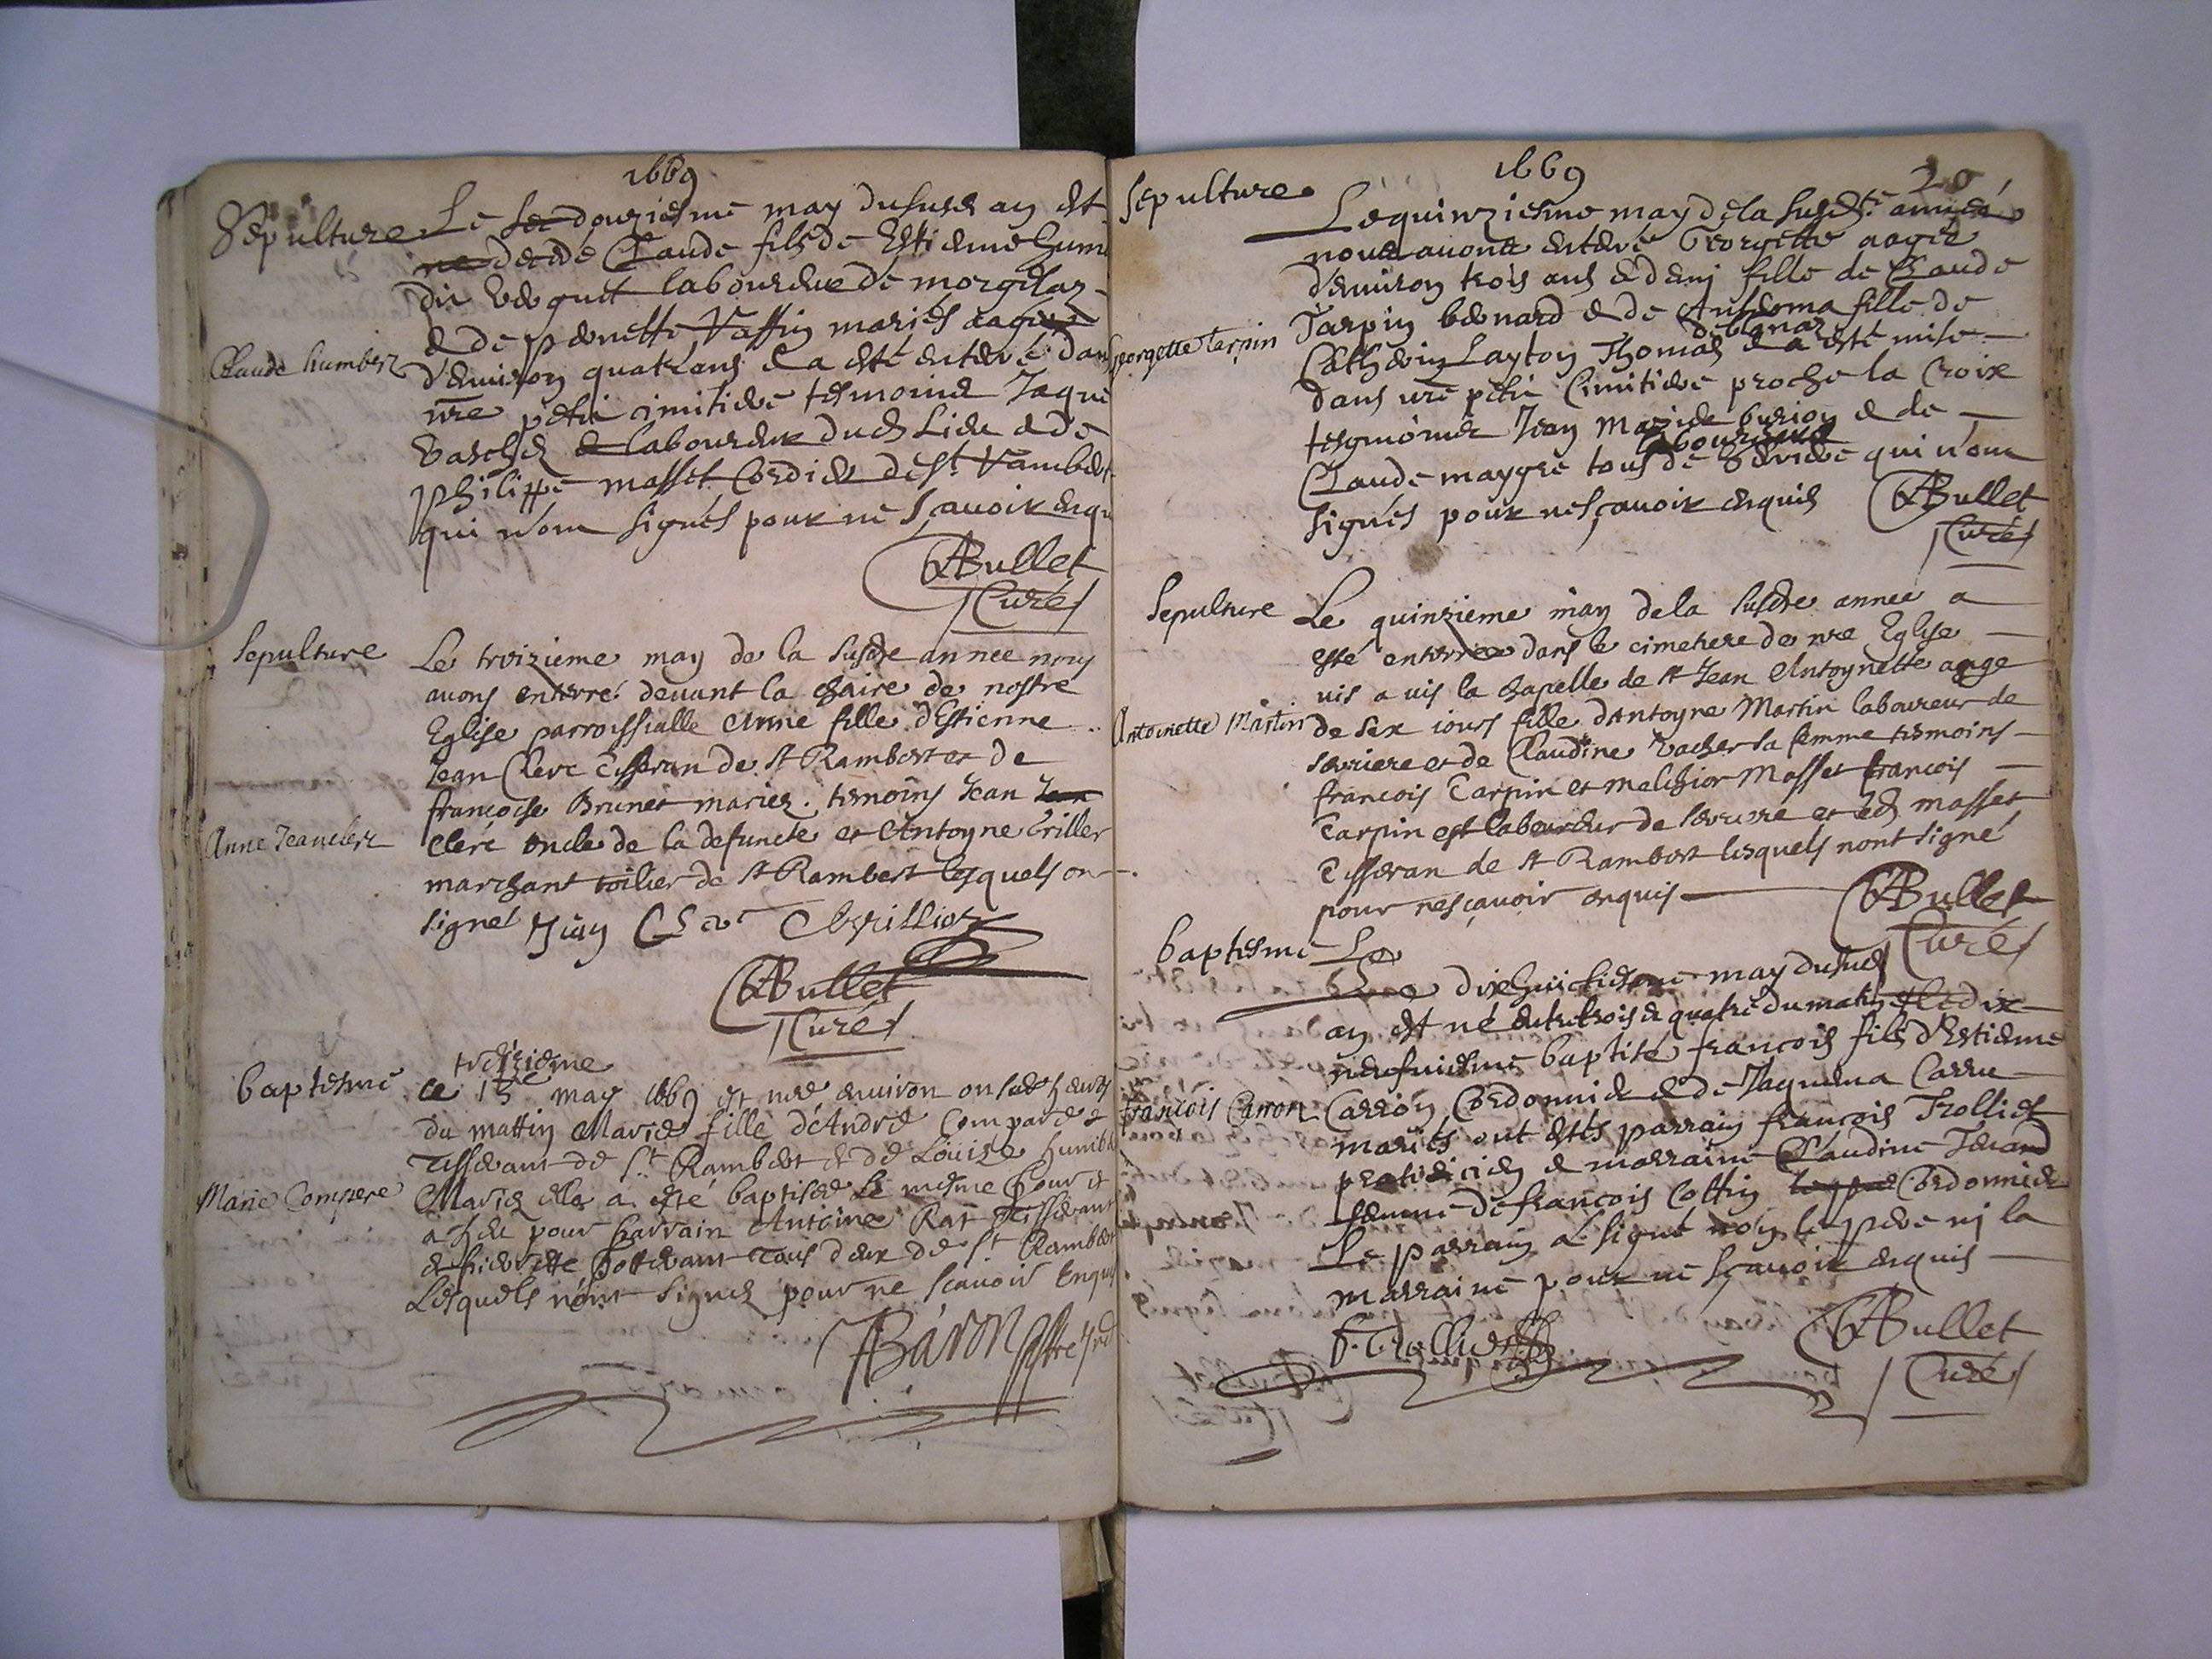 1669
Sepulture Le douziesme may du susd an est
decedé Claude fils de Estienne Hum
dit laboureur de morgelaz
& de pernette Vaffin mariés aagé
Claude humbert
d'environ quatre ans & a esté enterré dans
nre petit cimitiere tesmoins Jaque
Vascher laboureur dud Lieu & de
philippe masset Cordier de st Rambert
qui n'ont signés pour ne sçavoir enqu
ABullet
Curé
Sepulture
Le troizieme may de la susdte annee nous
avons enterré devant la chaire de nostre
Eglise parroissialle Anne fille d'Estienne
Jean Clerc Tisseran de st Rambert et de
françoise Brunet mariez. temoins Jean Jean
Anne Jeanclerc
Clerc oncle de la defuncte et Antoyne Triller
marchant toilier de st Rambert lesquels on
signé Jean Clerc
ABullet
Curé
treizieme
baptesme
ce 13e may 1669 est nee environ onse heures
du mattin Marie fille d'André Compare
Tisserant de St Rambert et de Louise humb
Marie Compere
Mariez elle a esté baptisee le mesme Jour et
a heu pour parrain Antoine Rat Tisserant
& pierrette tous deux de St Rambert
Lesquels n'ont signez pour ne scavoir Enquis
Baron pbre
1669
20
Sepulture
Le quinziesme may de la susdte année
nous avons enterré Georgette aagée
d'environ trois ans & demi fille de Claude
Tarpin bernard & de Anthoma fille de
Georgette Tarpin
Catherin Layton Thomas & a esté mise
dans nre petit Cimitiere proche la Croix
tesmoins Jean burion & de
laboureurs
Claude maygre tous de Serriere qui n'ont
signés pour ne sçavoir enquis ABullet
Curé
Sepulture
Le quinzieme may de la susdte annee a
esté enterree dans le cimetiere de nre Eglise
vis a vis la chapelle de st Jean Antoynette aage
Antoinette Martin
de sex iours fille d'Antoyne Martin laboureur de
serriere et de Claudine Vacher sa femme temoins
francois Tarpin et Melchior Masset francois
Tarpin est laboureur de serriere et led masset
Tisseran de st Rambert lesquels nont signé
pour ne sçavoir enquis
ABullet
Curé
baptesme Le
Le dixhuictiesme may du susd
an est né entre trois & quatre du matin & le dix
neufuiesme baptisé francois fils d'Estienne
francois Carron
Carron Cordonnier & de Jaquema Carru
mariés ont estés parrain francois Trollier
praticien & marraine Claudine Terand
femme de francois Cottin Cordonnier
Le parrain a signé non le pere ni la
marraine pour ne sçavoir enquis
f. Trollier
ABullet
Curé